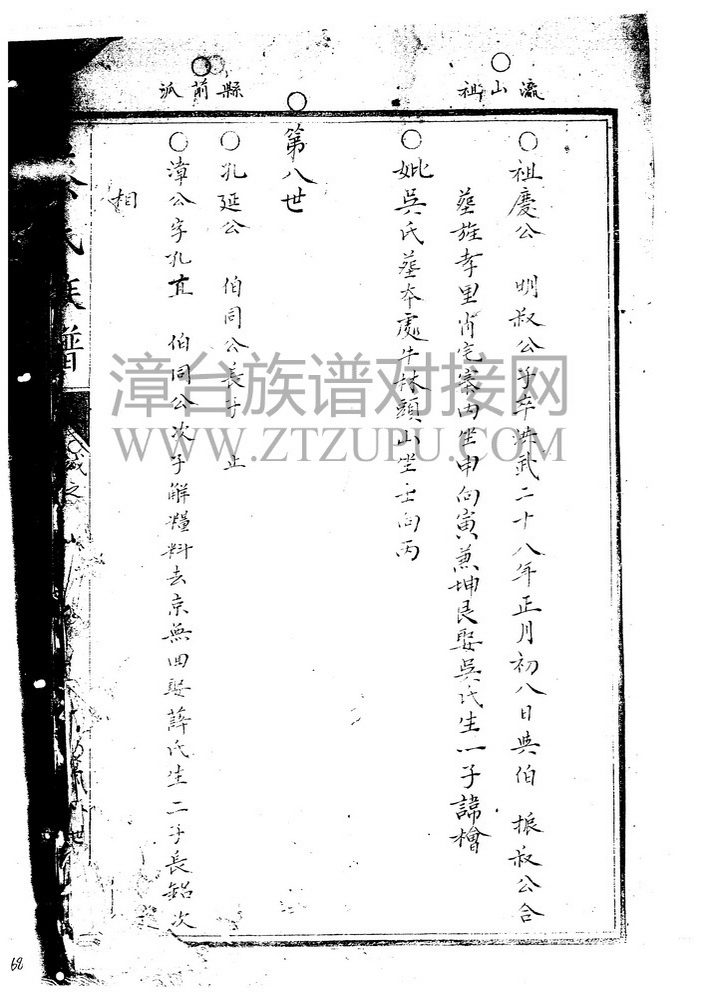 瀛山祖
縣前派
祖慶公 明叔公子卒洪武二十八年正月初八日與伯 振叔公合
葬旌孝里肖宅寨內坐申向寅兼坤艮娶吳氏生一子諱檜
妣吳氏葬本處牛林頭山坐壬向丙
第八世
孔延公 伯同公長子 止
漳公字孔直 伯同公次子解糧料去京無回娶薛氏生二子長鋁次
相
氏族譜
漳台族谱对接网
WWW.ZTZUPU.COM
68